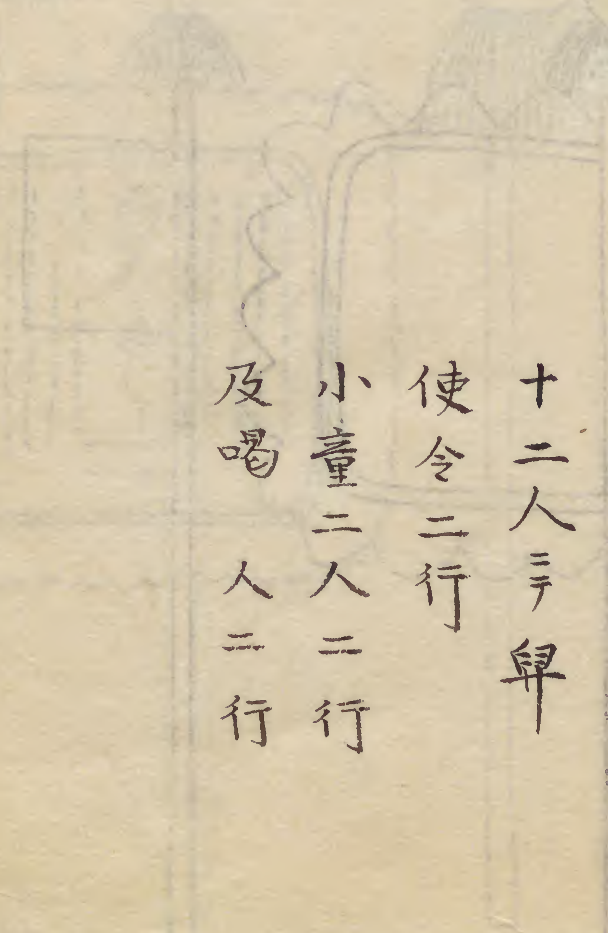 十二人ニテ舁
使令二行
小童二人二行
及喝　人二行